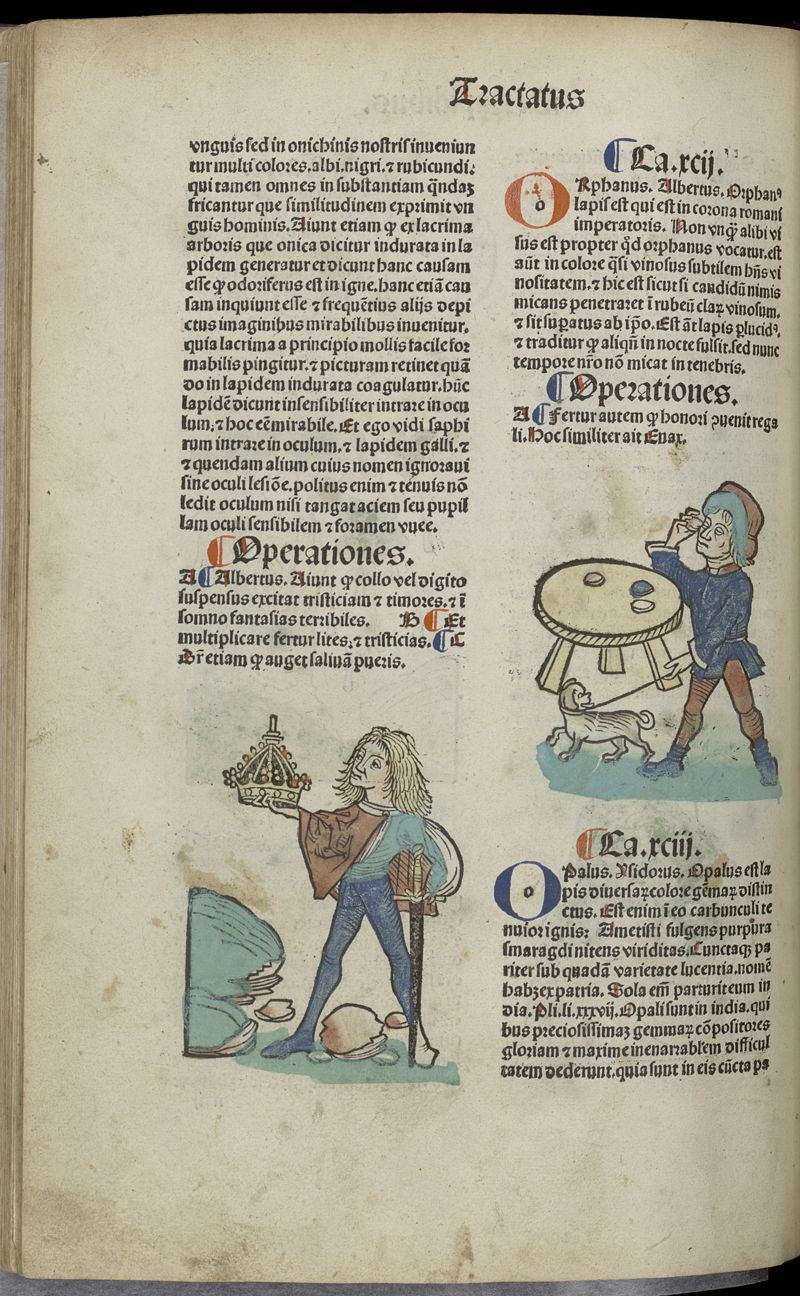 Tractatus
vnguis sed in onichinis nostris inueniun
tur multi colores.albi.nigri.⁊ rubicundi:
qui tamen omnes in substantiam q̄ndaꝫ
fricantur que similitudinem exprimit vn
guis hominis.Aiunt etiam ꝙ ex lacrima
arboris que onica dicitur indurata in la
pidem generatur et dicunt hanc causam
esse ꝙ odoriferus est in igne.hanc etiā cau
sam inquiunt esse ⁊ frequētius alijs depi
ctus imaginibus mirabilibus inuenitur.
quia lacrima a principio mollis facile for
mabilis pingitur.⁊ picturam retinet quā
do in lapidem indurata coagulatur.hūc
lapidē dicunt insensibiliter intrare in ocu
lum.⁊ hoc eē mirabile. Et ego vidi saphi
rum intrare in oculum.⁊ lapidem galli.⁊
⁊ quendam alium cuius nomen ignoraui
sine oculi lesiōe.politus enim ⁊ tenuis nō
ledit oculum nisi tangat aciem seu pupil
lam oculi sensibilem ⁊ foramen vuee.
¶ Operationes.
A ¶ Albertus. Aiunt ꝙ collo vel digito
suspensus excitat tristiciam ⁊ timores.⁊ ī
somno fantasias terribiles. B ¶ Et
multiplicare fertur lites.⁊ tristicias. ¶ C
Dr̄ etiam ꝙ auget saliuā pueris.
¶ Ca.xcij.
ORphanus. Albertus. Orphanꝰ
lapis est qui est in corona romani
imperatoris. Non vnꝙ̄ alibi vi
sus est propter qd̄ orphanus vocatur.est
aūt in colore q̄si vinosus subtilem hn̄s vi
nositatem.⁊ hic est sicut si candidū nimis
micans penetraret ī rubeū claꝝ vinosum.
⁊ sit suꝑatus ab ip̄o. Est āt lapis ꝑlucidꝰ.
⁊ traditur ꝙ aliqn̄ in nocte fulsit.sed nunc
tempore nr̄o nō micat in tenebris.
¶ Operationes.
A ¶ Fertur autem ꝙ honori ꝯuenit rega
li. Hoc similiter ait Euax.
¶ Ca.xciij.
OPalus. Ysidorus. Opalus est la
pis diuersaꝝ colore gēmaꝝ distin
ctus. Est enim ī eo carbunculi te
nuior ignis: Ametisti fulgens purpura
smaragdi nitens viriditas. Cunctaqꝫ pa
riter sub quadā varietate lucentia.nomē
habꝫ ex patria. Sola em̄ parturit eum in
dia. Pli.li.xxxvij. Opali sunt in india.qui
bus preciosissimaꝫ gemmaꝝ cōpositores
gloriam ⁊ maxime inenarrabl̄em difficul
tatem dederunt.quia sunt in eis cūcta pa